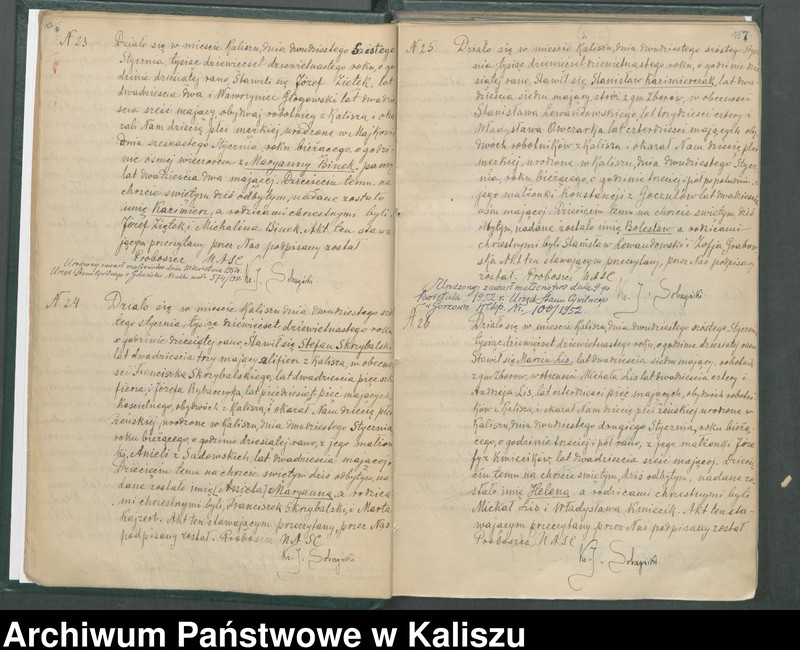 157
N 23
Działo się w mieście Kaliszu, dnia dwudziestego szóstego
Stycznia, tysiąc dziewięćset dziewiętnastego roku, o go-
dzinie dziesiątej rano, Stawił się Józef Ziętek, lat
dwadzieścia dwa i Wawrzyniec Głogowski lat dwadzie
ścia sześć mający, obydwaj robotnicy z Kalisza, i oka
zali Nam dziecię płci męzkiej, urodzone w Majkowie
dnia szesnastego Stycznia, roku bieżącego, o godzi-
nie ósmej wieczorem z Maryanny Binek, panny
lat dwadzieścia dwa mającej. Dziecięciu temu na
chrzcie świętym dziś odbytym, nadane zostało
imię Kazimierz, a rodzicami chrzestnymi byli
Józef Ziętek i Michalina Binek. Akt ten stawa-
jącym przeczytany, przez Nas podpisany został
Proboszcz U.A.S.C.
Ks. J. Sobczyński
N 24
Działo się w mieście Kaliszu dnia dwudziestego szó
stego stycznia, tysiąc dziewięćset dziewiętnastego roku
o godzinie dziesiątej rano; Stawił się Stefan Skrybalski
lat dwadzieścia trzy mający, szlifierz z Kalisza, w obecno
ści Franciszka Skrybalskiego, lat dwadzieścia pięć szli
fierza, i Józefa Rybarczyka, lat piędziesiąt pięć mających
kościelnego, obydwóch z Kalisza, i okazał Nam dziecię płci
żeńskiej, urodzone w Kaliszu, dnia dwudziestego Stycznia
roku bieżącego, o godzinie dziesiątej rano, z jego małżon
ki, Anieli z Sadowskich, lat dwadzieścia mającej.
Dziecięciu temu na chrzcie świętym dziś odbytym, na-
dane zostało imię (Aniela) Maryanna, a rodzica
mi chrzestnymi byli, Franciszek Skrybalski, i Marta
Kajzert. Akt ten stawającym przeczytany, przez Nas
podpisany został. Proboszcz U.A.S.C.
Ks. J. Sobczyński
N 25
Działo się w mieście Kaliszu, dnia dwudziestego szóstego Stycz
nia, tysiąc dziewięćset dziewiętnastego roku, o godzinie dzie
siątej rano, Stawił się, Stanisław Kazimierczak, lat dwa
dzieścia siedm mający, stróż z gm Zborów, w obecności
Stanisława Lewandowskiego, lat trzydzieści cztery i
Władysława Owczarka, lat czterdzieści mających, oby
dwóch robotników z Kalisza i okazał Nam dziecię płci
męzkiej, urodzone w Kaliszu, dnia dwudziestego Stycz
nia, roku bieżącego, o godzinie trzeciej i pół popołudniu, z
jego małżonki Konstancji z lat dwadzieścia
ośm mającej. Dziecięciu temu na chrzcie świętym, dziś
odbytym, nadane zostało imię Bolesław, a rodzicami
chrzestnymi byli Stanisław Lewandowski i Zofja Grabow
ska Akt ten stawającym przeczytany, przez Nas podpisany
został. Proboszcz U.A.S.C.
Ks. J. Sobczyński
Urodzony zawarł małżeństwo dnia 9-go
kwietnia 1952 r. Urząd Stanu Cywilnego
w Gorzowie Wlkp. Nr. 100/1952
N 26
Działo się w mieście Kaliszu, dnia dwudziestego szóstego Stycznia
tysiąc dziewięćset dziewiętnastego roku, o godzinie dziesiątej rano
Stawił się, Marcin Lis, lat dwadzieścia siedm mający, robotnik
z gm Zborów, w obecności Michała Lis lat dwadzieścia cztery i
Andrzeja Lis, lat czterdzieści pięć mających, obydwóch robotni
ków z Kalisza i okazał Nam dziecię płci żeńskiej urodzone w
Kaliszu dnia dwudziestego drugiego Stycznia, roku bieżą-
cego, o godzinie trzeciej i pół rano, z jego małżonki Józe
fy z Kmiecików, lat dwadzieścia sześć mającej. Dziecię
ciu temu na chrzcie świętym, dziś odbytym, nadane zo
stało imię Helena, a rodzicami chrzestnymi byli
Michał Lis i Władysława Kmiecik. Akt ten sta-
wającym przeczytany, przez Nas podpisany został
Proboszcz U.A.S.C.
Ks. J. Sobczyński
Archiwum Państwowe w Kaliszu